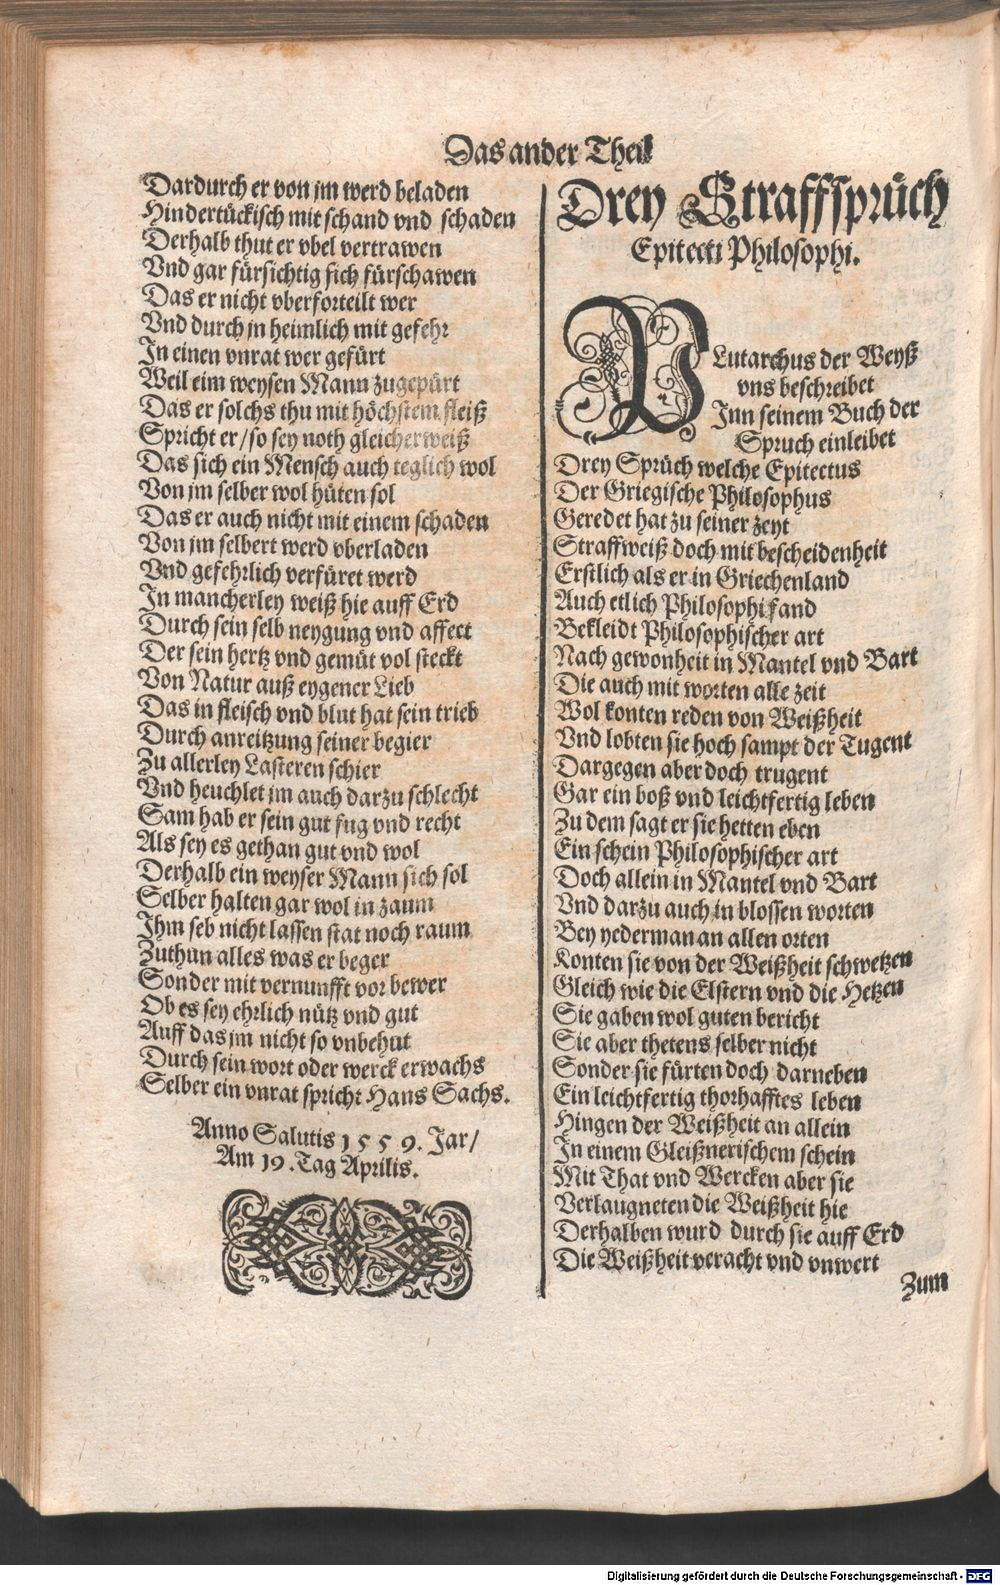 Das ander Theil
Dardurch er von jm werd beladen
Hindertückisch mit schand vnd schaden
Derhalb thut er vbel vertrawen
Vnd gar fürsichtig sich fürschawen
Das er nicht vberforteilt wer
Vnd durch jn heimlich mit gefehr
In einen vnrat wer gefürt
Weil eim weysen Mann zugepürt
Das er solchs thu mit höchstem fleiß
Spricht er / so sey noth gleicherweiß
Das sich ein Mensch auch teglich wol
Von jm selber wol hüten sol
Das er auch nicht mit einem schaden
Von jm selbert werd vberladen
Vnd gefehrlich verfüret werd
In mancherley weiß hie auff Erd
Durch sein selb neygung vnd affect
Der sein hertz vnd gemüt vol steckt
Von Natur auß eygener Lieb
Das in fleisch vnd blut hat sein trieb
Durch anreitzung seiner begier
Zu allerley Lasteren schier
Vnd heuchlet jm auch darzu schlecht
Sam hab er sein gut fug vnd recht
Als sey es gethan gut vnd wol
Derhalb ein weyser Mann sich sol
Selber halten gar wol in zaum
Ihm selb nicht lassen stat noch raum
Zuthun alles was er beger
Sonder mit vernunfft vor bewer
Ob es sey ehrlich nütz vnd gut
Auff das jm nicht so vnbehut
Durch sein wort oder werck erwachs
Selber ein vnrat spricht Hans Sachs.
Anno Salutis 1559. Jar /
Am 19. Tag Aprilis.
Drey Straffsprüch
Epitecti Philosophi.
PLutarchus der Weyß
vns beschreibet
Inn seinem Buch der
Spruch einleibet
Drey Sprüch welche Epitectus
Der Griegische Philosophus
Geredet hat zu seiner zeyt
Straffweiß doch mit bescheidenheit
Erstlich als er in Griechenland
Auch etlich Philosophi fand
Bekleidt Philosophischer art
Nach gewonheit in Mantel vnd Bart
Die auch mit worten alle zeit
Wol konten reden von Weißheit
Vnd lobten sie hoch sampt der Tugent
Dargegen aber doch trugent
Gar ein boß vnd leichtfertig leben
Zu dem sagt er sie hetten eben
Ein schein Philosophischer art
Doch allein in Mantel vnd Bart
Vnd darzu auch in blossen worten
Bey yederman an allen orten
Konten sie von der Weißheit schwetzen
Gleich wie die Elstern vnd die Hetzen
Sie gaben wol guten bericht
Sie aber thetens selber nicht
Sonder sie fürten doch darneben
Ein leichtfertig thorhafftes leben
Hingen der Weißheit an allein
In einem Gleißnerischem schein
Mit That vnd Wercken aber sie
Verlaugneten die Weißheit hie
Derhalben wurd durch sie auff Erd
Die Weißheit veracht vnd vnwert
Zum
Digitalisierung gefördert durch die Deutsche Forschungsgemeinschaft - DFG